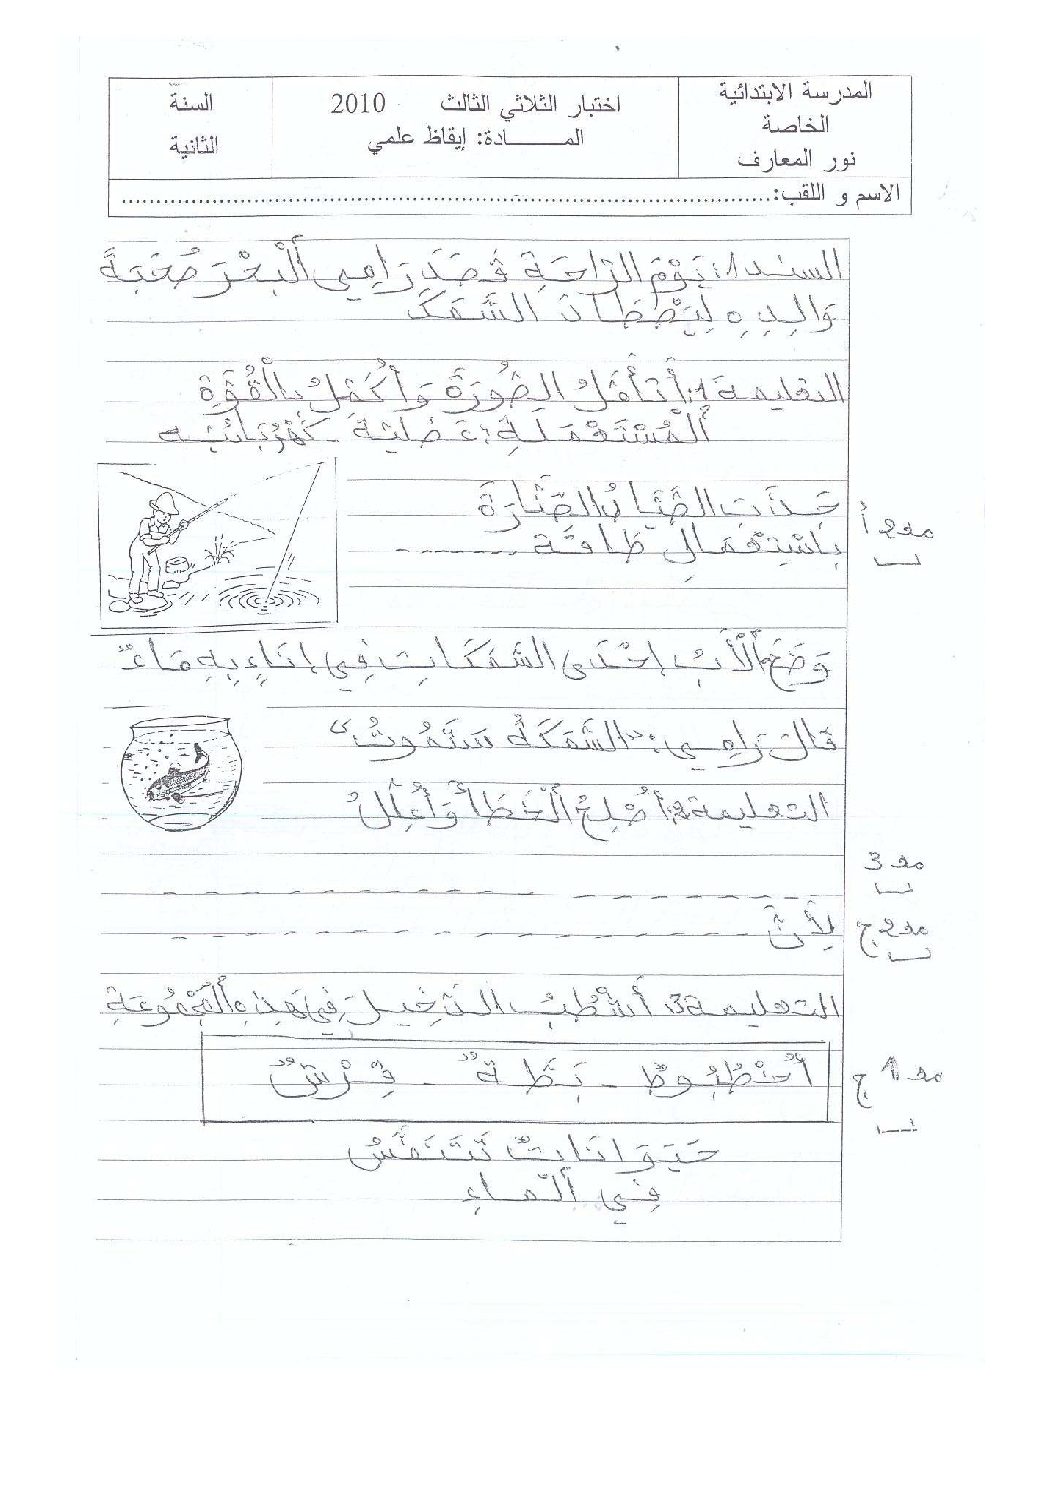 المدرسة الابتدائية
الخاصة
نور المعارف
اختبار الثلاثي الثالث 2010
المـــــادة: إيقاظ علمي
السنة
الثانية
الاسم و اللقب:................................................................................................
السند 1: يَوْمَ الرَّاحَةِ قَصَدَ رَامِي الْبَحْرَ صُحْبَةَ
وَالِدِهِ لِيَصْطَادَ السَّمَكَ
التعليمة 1: أَتَأَمَّلُ الصُّورَةَ وَأُكْمِلُ بِالْقُوَّةِ
الْمُسْتَعْمَلَةِ: عَضَلِيَّة - كَهْرُبَائِيَّه
جَذَبَ الصَّيَّادُ الصِّنَّارَةَ
بِاسْتِعْمَالِ طَاقَة ........
مع2 أ
وَضَعَ الْأَبُ إِحْدَى السَّمَكَاتِ فِي إِنَاءٍ بِهِ مَاءٌ
قَالَ رَامِي: "السَّمَكَةُ سَتَمُوتُ"
التعليمة 2: أُصْلِحُ الْخَطَأَ وَأُعَلِّلُ
مع 3
لِأَنَّ
مع2 ج
التعليمة 3: أَشْطُبُ الدَّخِيلَ فِي هَذِهِ الْمَجْمُوعَةِ
أُخْطُبُوطٌ - بَطَّةٌ - قِرْشٌ
مع 1 ج
حَيَوَانَاتٌ تَتَنَفَّسُ
فِي الْمَاءِ